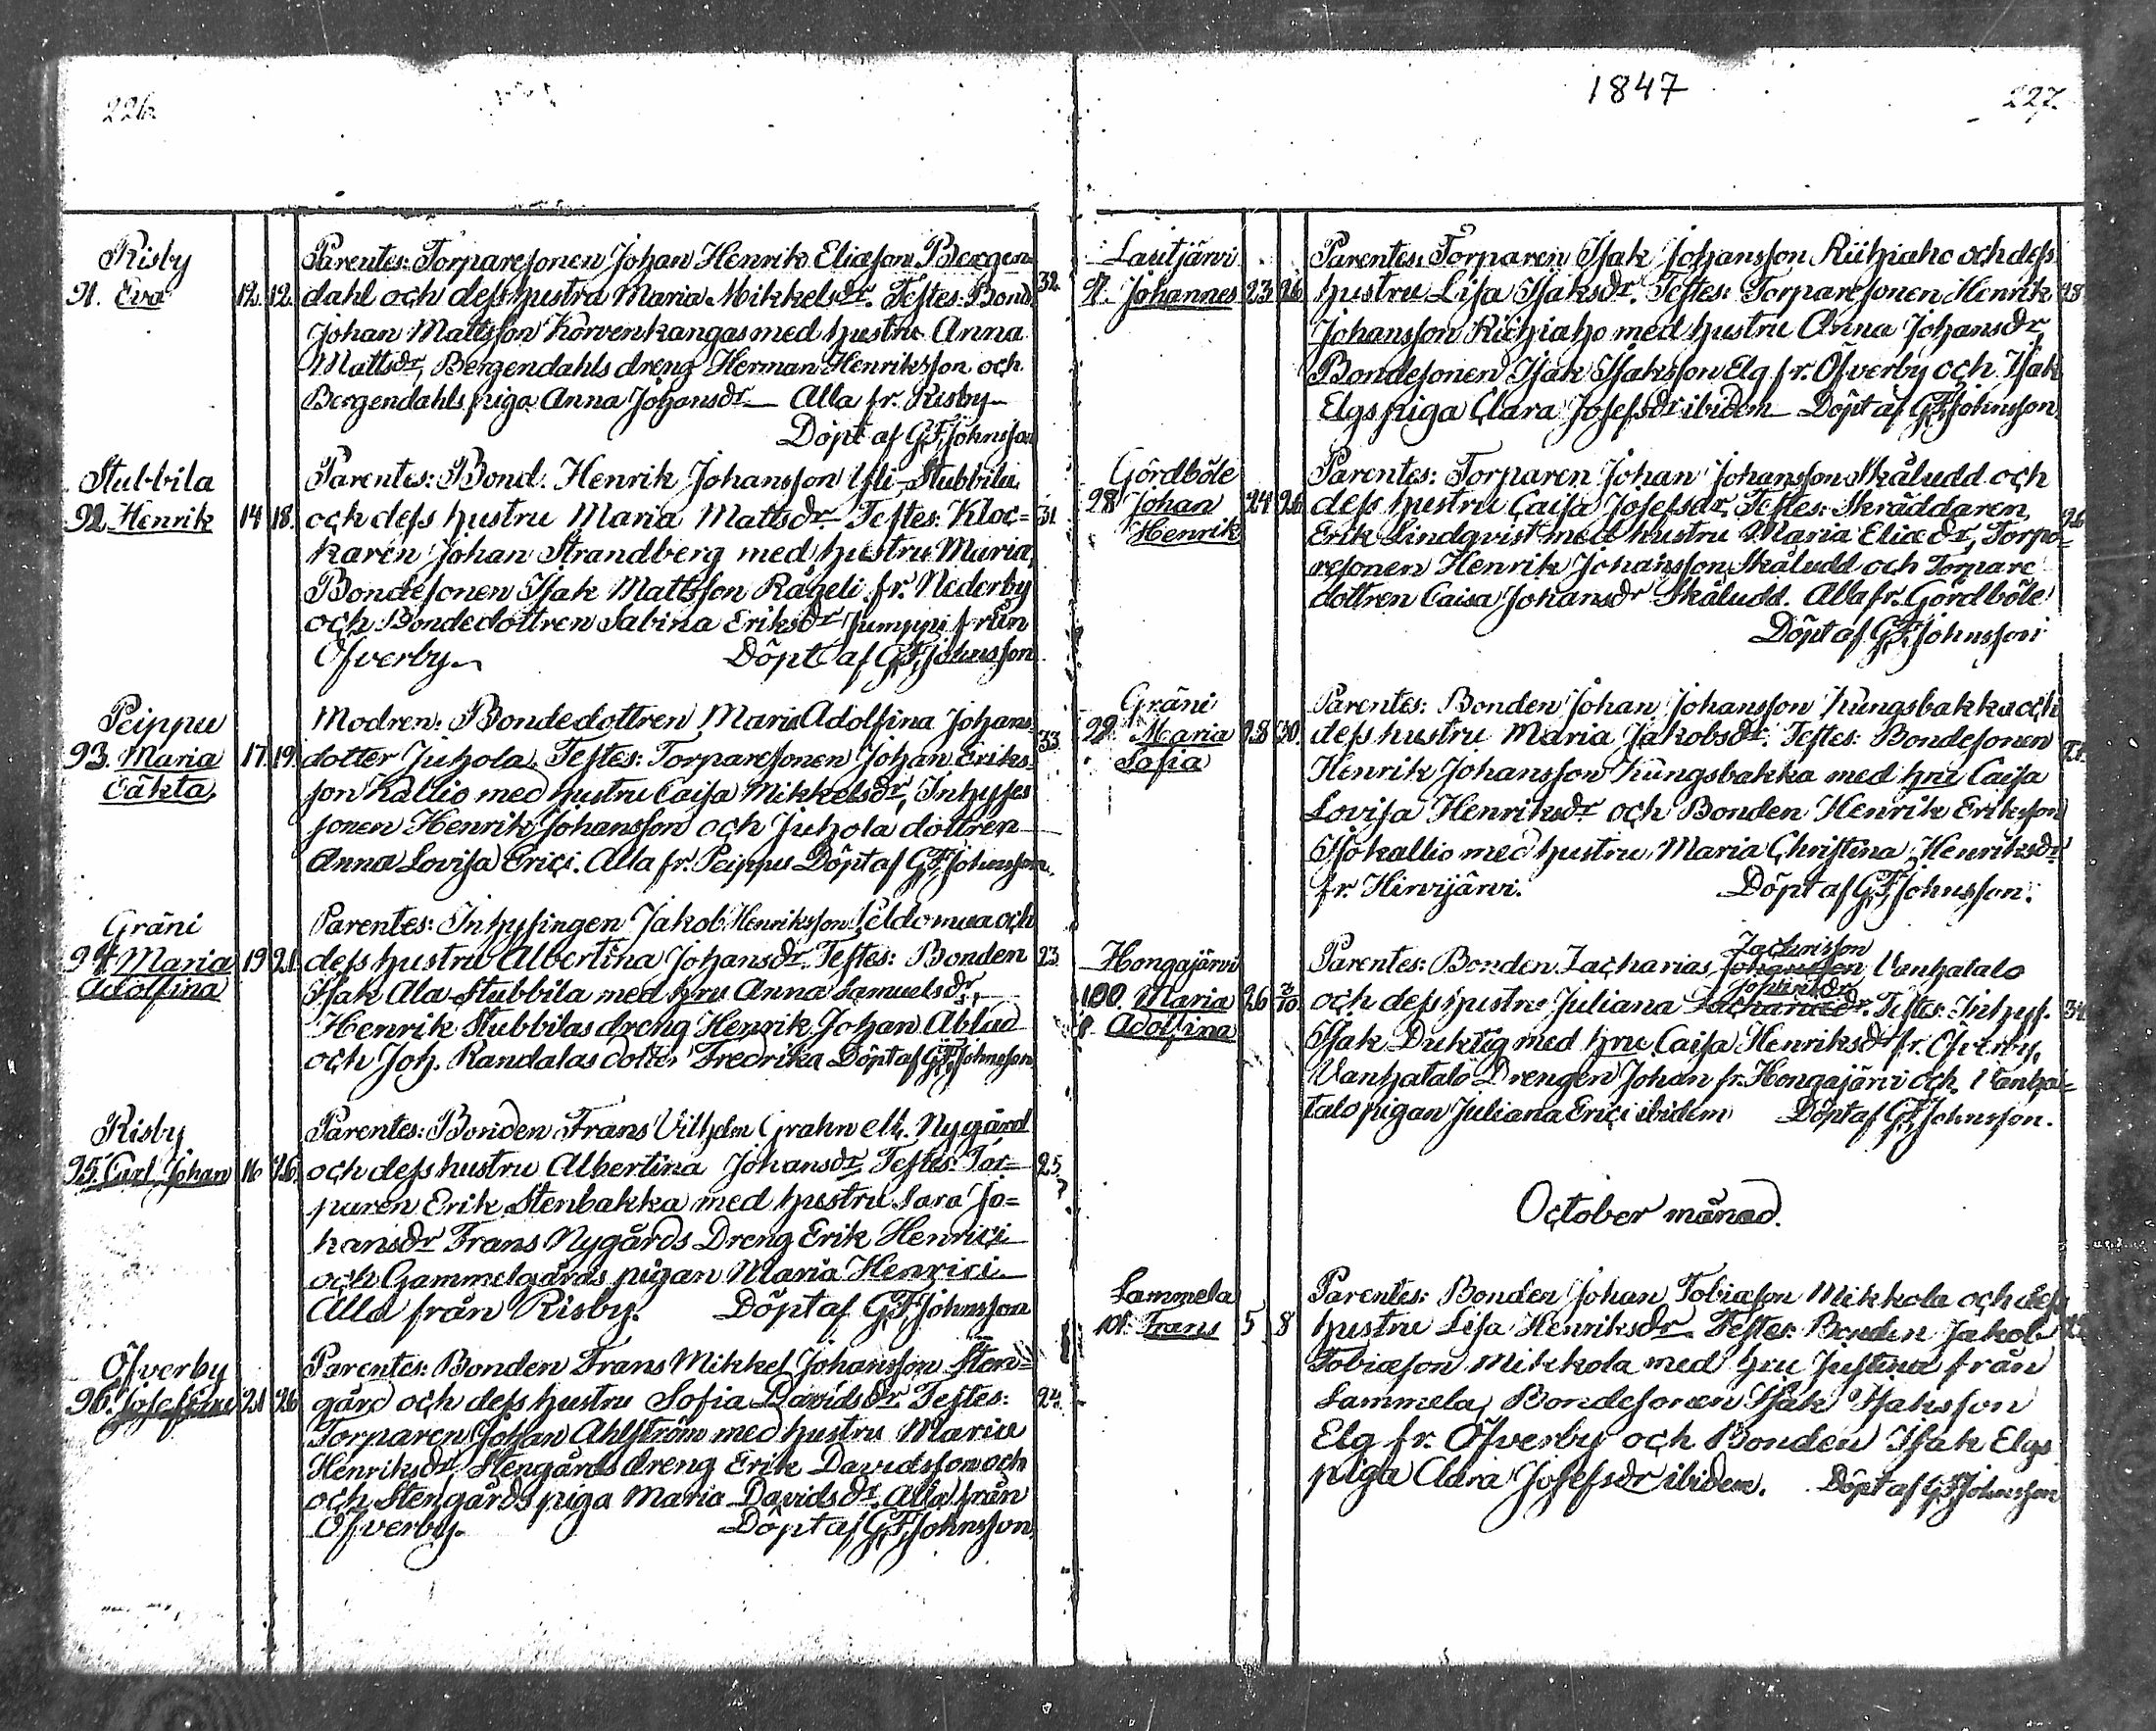 226.
Risby
91. Eva 12. 12. Parentes: Torparesonen Johan Henrik Eliæson Bergen-
dahl och dess hustru Maria Mikkelsdr. Testes: Bond. 32.
Johan Mattsson Korvenkangas med hustru Anna
Mattsdr, Bergendahls dreng Herman Henriksson och
Bergendahls piga Anna Johansdr — Alla fr. Risby —
Döpt af G.F. Johnsson
Stubbila
92. Henrik 14 18. Parentes: Bond. Henrik Johansson Yli-Stubbila
och dess hustru Maria Mattsdr Testes: Kloc= 31.
karen Johan Strandberg med hustru Maria,
Bondesonen Isak Mattsson Rågeli fr. Nederby
och Bondedottren Sabina Eriksdr Jumppi från
Öfverby. Döpt af G.F. Johnsson
Peippu
93. Maria 17. 19.
Modren: Bondedottren Maria Adolfina Johans-
dotter Juhola. Testes: Torparesonen Johan Eriks- 33.
son Kallio med hustru Caisa Mikkelsdr, Inhyses
sonen Henrik Johansson och Juhola dottren
Anna Lovisa Erici. Alla fr. Peippu Döpt af G.F. Johnsson.
Gräni
94 Maria 19 21.
Adolfina
Parentes: Inhysingen Jakob Henriksson och
dess hustru Albertina Johansdr. Testes: Bonden 23.
Isak Ala Stubbila med hru Anna Samuelsdr,
Henrik Stubbilas dreng Henrik Johan Ablad
och Joh. Randalas dotter Fredrika Döpt af G.F. Johnsson
Risby
95. Carl Johan 16 26.
Parentes: Bonden Frans Vilhelm Grahn ell. Nygård
och dess hustru Albertina Johansdr Testes: Tor= 25
paren Erik Stenbakka med hustru Sara Jo=
hansdr Frans Nygårds Dreng Erik Henrici
och Gammelgårds pigan Maria Henrici.
Alla från Risby. Döpt af G.F. Johnsson
Öfverby
96. Josefina 21 26
Parentes: Bonden Frans Mikkel Johansson Sten=
gård och dess hustru Sofia Davidsdr Testes: 24.
Torparen Johan Ahlström med hustru Maria
Henriksdr, Stengårds dreng Erik Davidsson och
och Stengårds piga Maria Davidsdr. Alla från
Öfverby. Döpt af G.F. Johnsson
1847
227.
Lautjärvi
97. Johannes 23 26.
Parentes: Torparen Isak Johansson Riihiaho och dess
hustru Lisa Isaksdr. Testes: Torparesonen Henrik 28
Johansson Riihiaho med hustru Anna Johansdr,
Bondesonen Isak Isaksson Elg fr. Öfverby och Isak
Elgs piga Clara Josefsdr ibidem — Döpt af G.F. Johnsson
Gördböle
98 Johan 24 26
Henrik
Parentes: Torparen Johan Johansson Skåludd och
dess hustru Caisa Josefsdr, Testes: Skräddaren 26
Erik Lindqvist med hustru Maria Eliædr, Torpa-
resonen Henrik Johansson Skåludd och Torpare
dottren Caisa Johansdr Skåludd. Alla fr. Gördböle
Döpt af G.F. Johnsson
Gräni
99. Maria 28 30.
Sofia
Parentes: Bonden Johan Johansson Kungsbakka och
dess hustru Maria Jakobsdr. Testes: Bondesonen
Henrik Johansson Kungsbakka med hru Caisa
Lovisa Henriksdr och Bonden Henrik Eriksson
Isokallio med hustru Maria Christina Henriksdr
fr. Hirvijärvi. Döpt af G.F. Johnsson.
Hongajärvi
100. Maria 26 3/10.
Adolfina
Zachrisson
Parentes: Bonden Zacharias Johansson Vanhatalo
Johansdr
och dess hustru Juliana Zachariædr. Testes: Inhys. 34.
Isak Duktig med hru Caisa Henriksdr fr. Öfverby,
Vanhatalo Drengen Johan fr. Hongajärvi och Vanha=
talo pigan Juliana Erici ibidem Döpt af G.F. Johnsson.
October månad.
Lammela
101. Frans 5 8
Parentes: Bonden Johan Tobiason Mikkola och dess
hustru Lisa Henriksdr Testes: Bonden Jakob
Tobiæson Mikkola med hru Justina från
Lammela, Bondesonen Isak Isaksson
Elg fr. Öfverby och Bonden Isak Elgs
piga Clara Josefsdr ibidem. Döpt af G.F. Johnsson